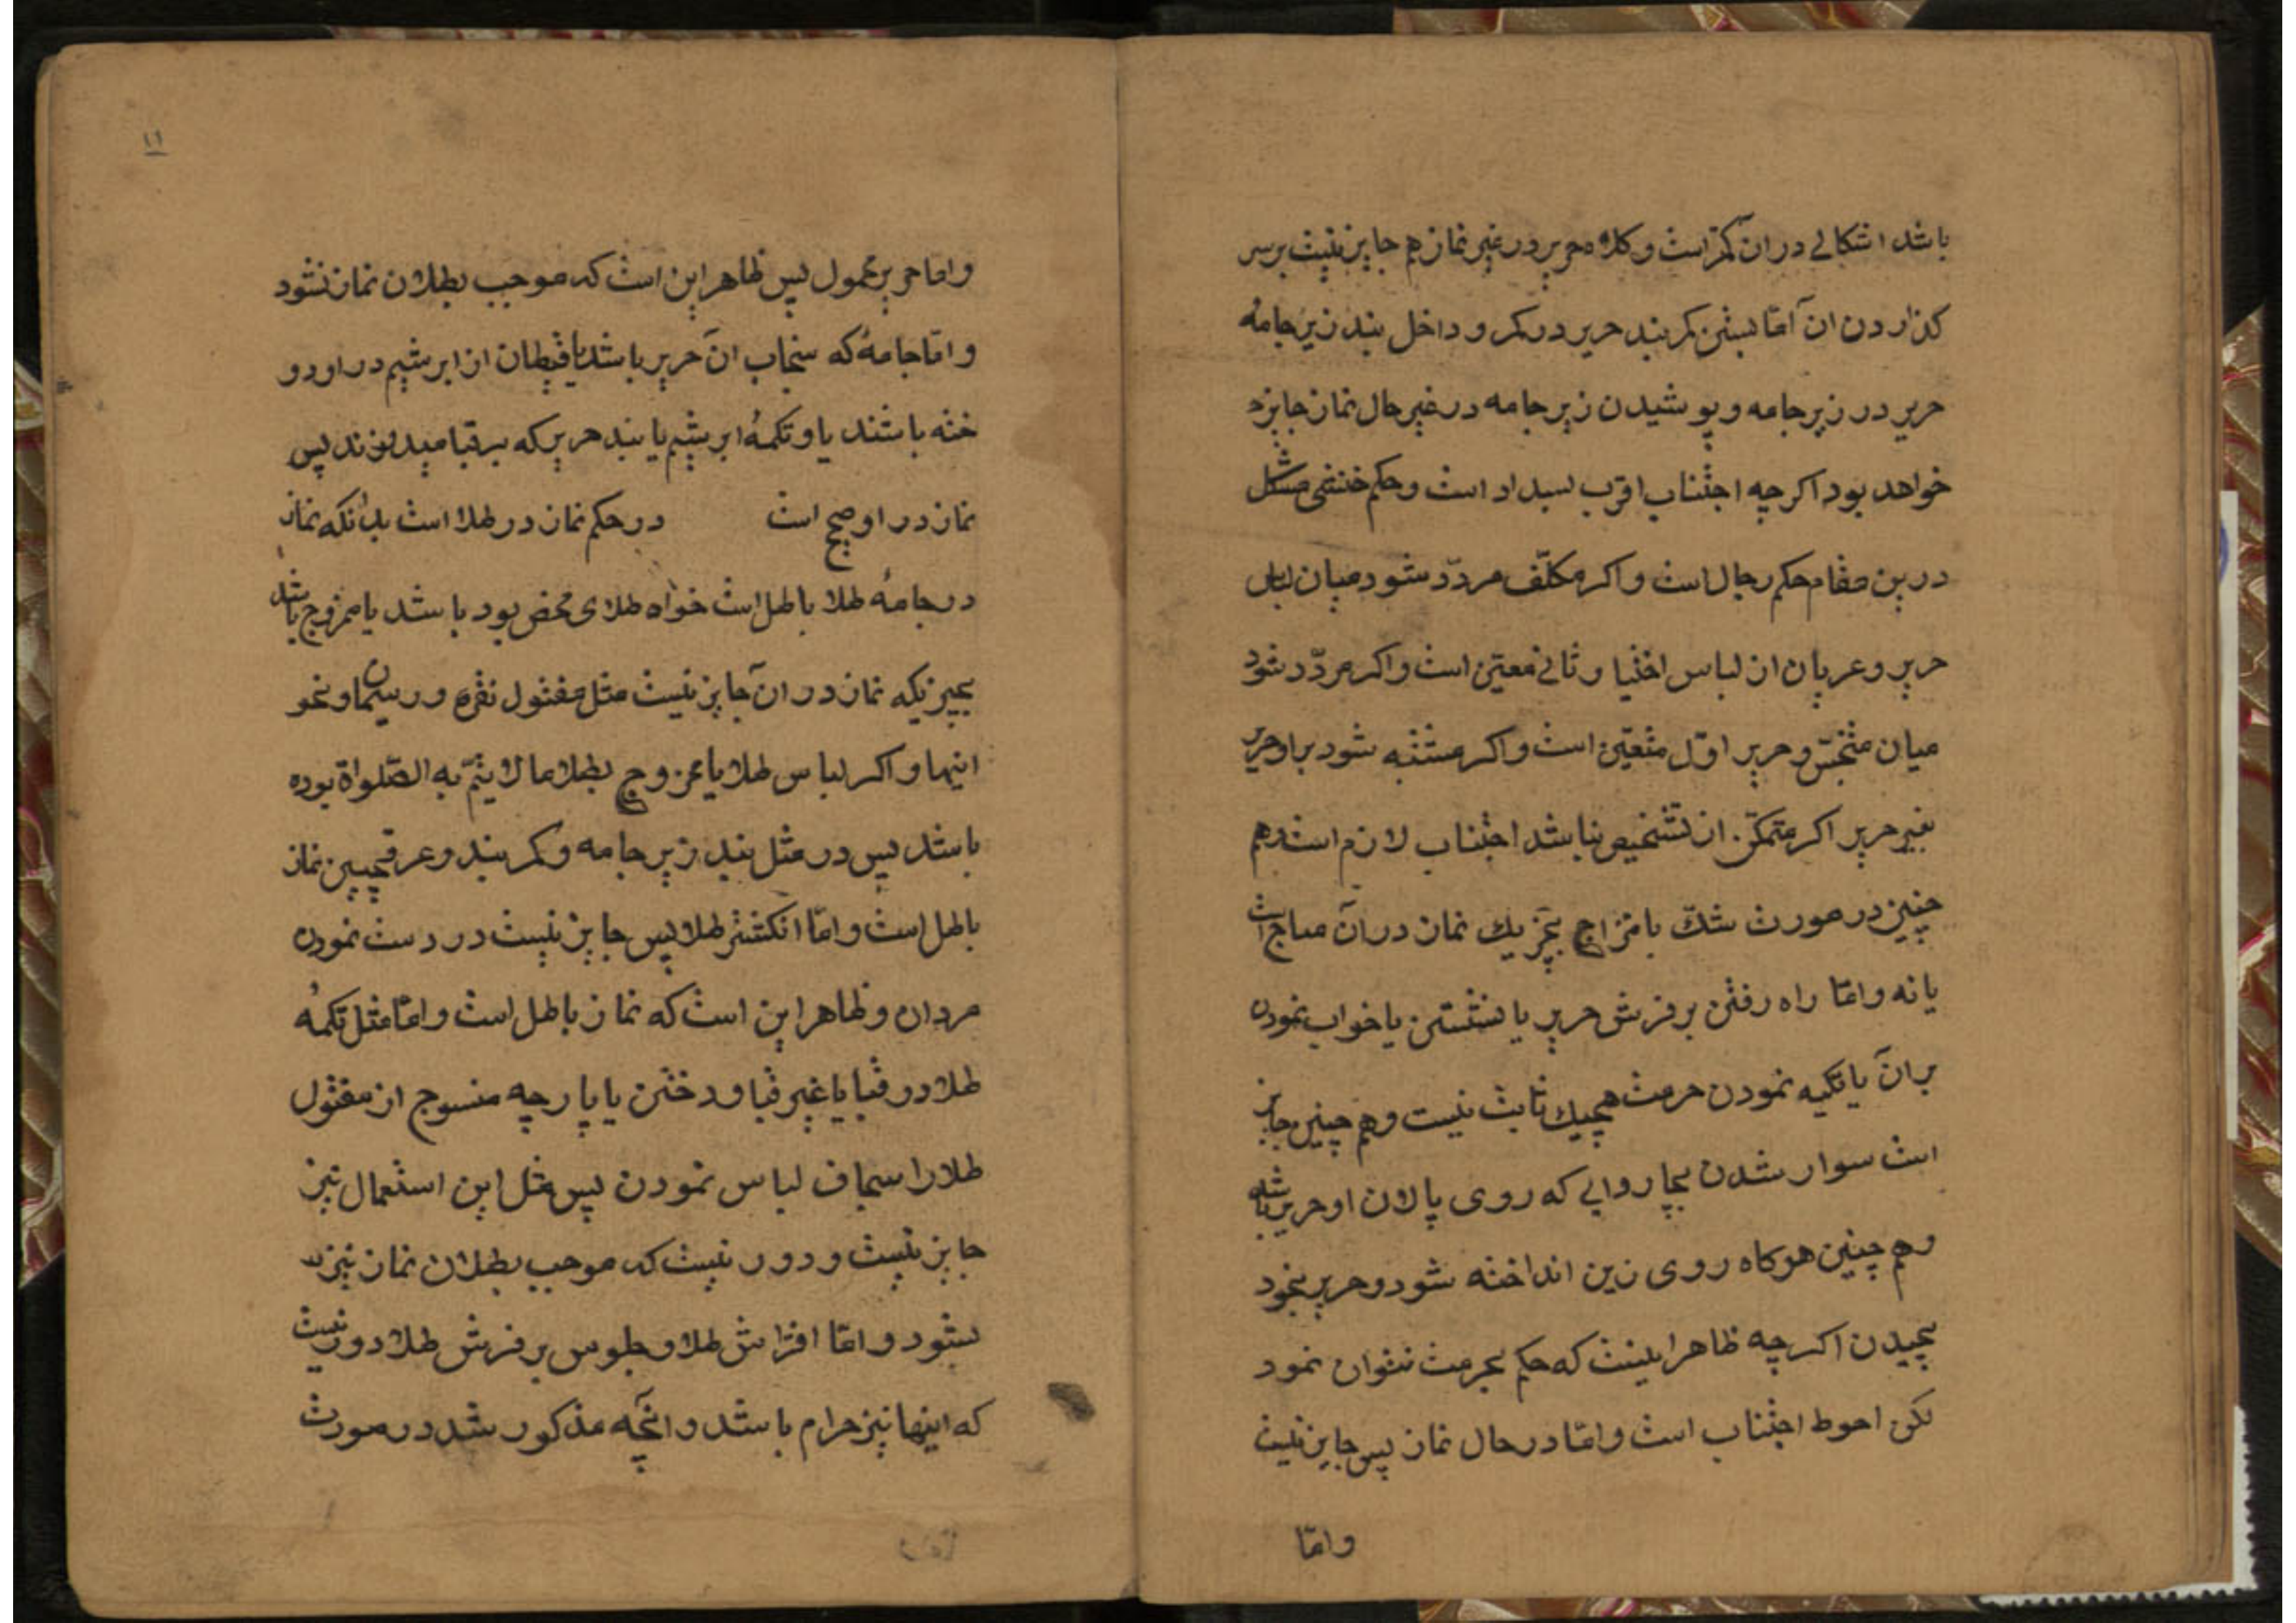 باشد اشکالی در آن کمتر است و کلاه حریر در غیر نماز هم جایز نیست بر سر
کذاردن ان آما بستن کمربند حریر در کمر و داخل بند زیر جامهٔ
حریر در زیر جامه و پوشیدن زیر جامه در غیر حال نماز جایزه
خواهد بود اکرچه اجتناب اقرب بسداد است و حکم خنثی مشکل
درین مقام حکم رجال است و اکر مکلّف مردّد شود میان لباس
حریر و عریان از لباس اختیار ثانی معیّن است و اکر مردّد شود
میان متنجّس و حریر اوّل متعیّن است و اکر مشتبه شود براو حریر
بغیر حریر اکر متمکّن از تشخیص نباشد اجتناب لازم است و هم
چنین در صورت شکّ بامتزاج بچیزیك نماز در آن مباح است
یا نه و امّا راه رفتن بر فرش حریر یا نشستن یا خواب نمودن
بر آن یا تکیه نمودن حرمت هیچیك ثابت نیست و هم چنین جایز
است سوار شدن بچاروایی که روی پالان او حریر باشد
و هم چنین هرکاه روی زین انداخته شود و حریر بخود
پیچیدن اکرچه ظاهر اینست که حکم بحرمت نتوان نمود
لکن احوط اجتناب است و امّا در حال نماز پس جایز نیست
و امّا
۱۱
و اما حریر محمول پس ظاهر این است که موجب بطلان نماز نشود
و امّا جامهٔ که سنجاب آن حریر باشد یا قیطان از ابریشم در او دو
خته باشند یا و تکمهٔ ابریشم یا بند حریر که بر قبا میدوزند پس
نماز در او صحیح است در حکم نماز در طلا است بدانکه نماز
در جامهٔ طلا باطل است خواه طلای محض بود باشد یا ممزوج باشد
بچیزیکه نماز در آن جایز نیست مثل مفتول نقره و ریسمان و نحو
اینها و اکر لباس طلا یا ممزوج بطلا ما لا یتمّ به الصّلواة بوده
باشد پس در مثل بند زیر جامه و کمربند و عرقچین نماز
باطل است و امّا انکشتر طلا پس جایز نیست در دست نمودن
مردان و ظاهر این است که نماز باطل است و امّا مثل تکمهٔ
طلا در قبا یا غیر قبا و دختن یا پارچه منسوج از مفتول
طلا را سجاف لباس نمودن پس مثل این استعمال نیز
جایز نیست و دور نیست که موجب بطلان نماز نیز
بشود و امّا افتراش طلا و جلوس بر فرش طلا دور نیست
که اینها نیز حرام باشد و آنچه مذکور شد در صورت